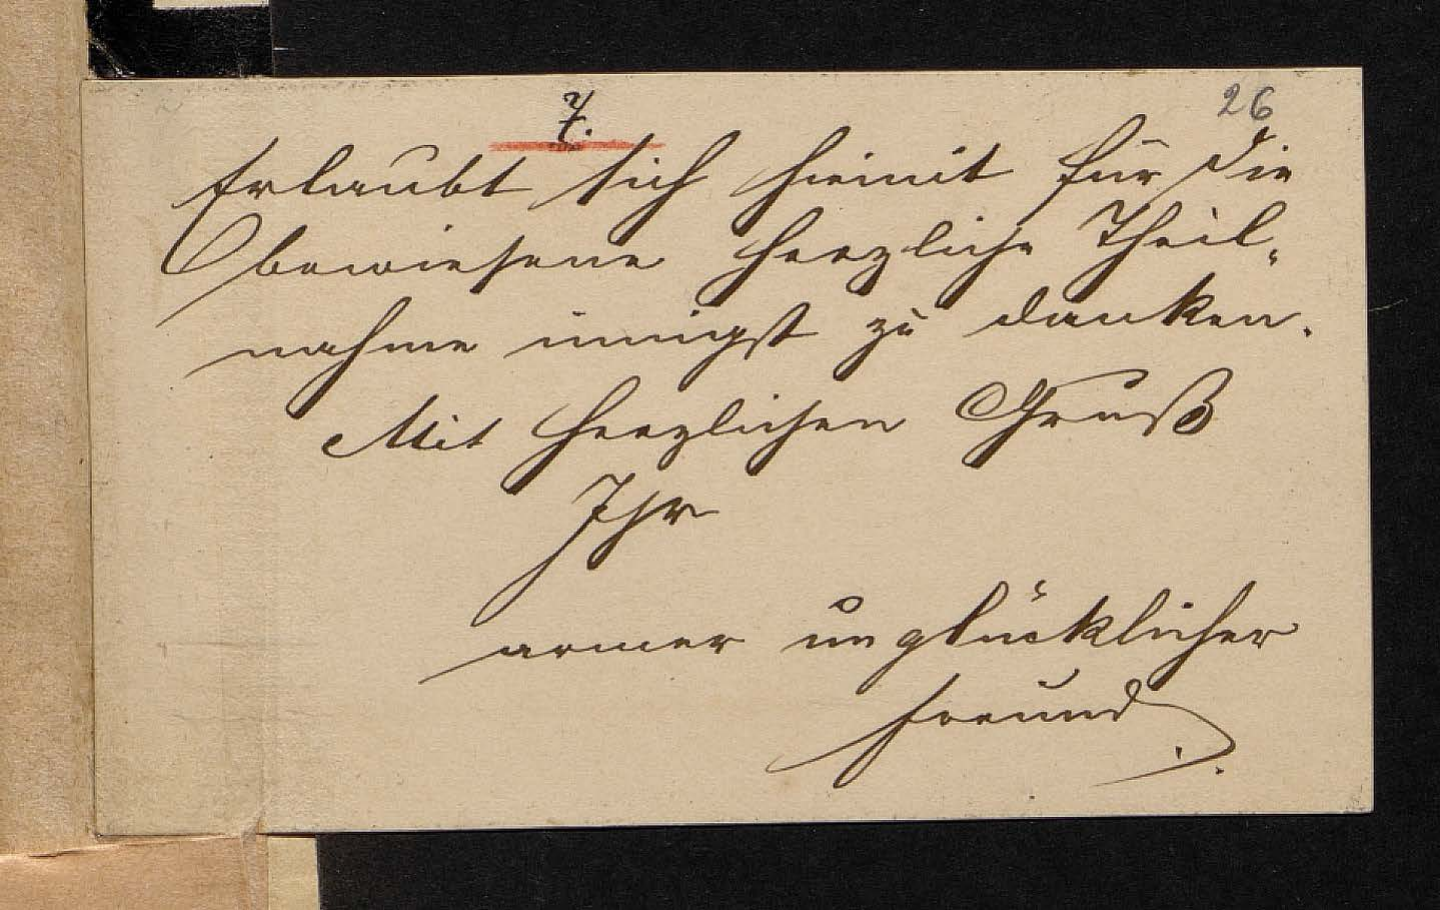 26
7.
Erlaubt sich hiemit für die
bewiesene herzliche Theil-
nahme innigst zu danken.
Mit herzlichen Gruß
Ihr
armer unglücklicher
Freund